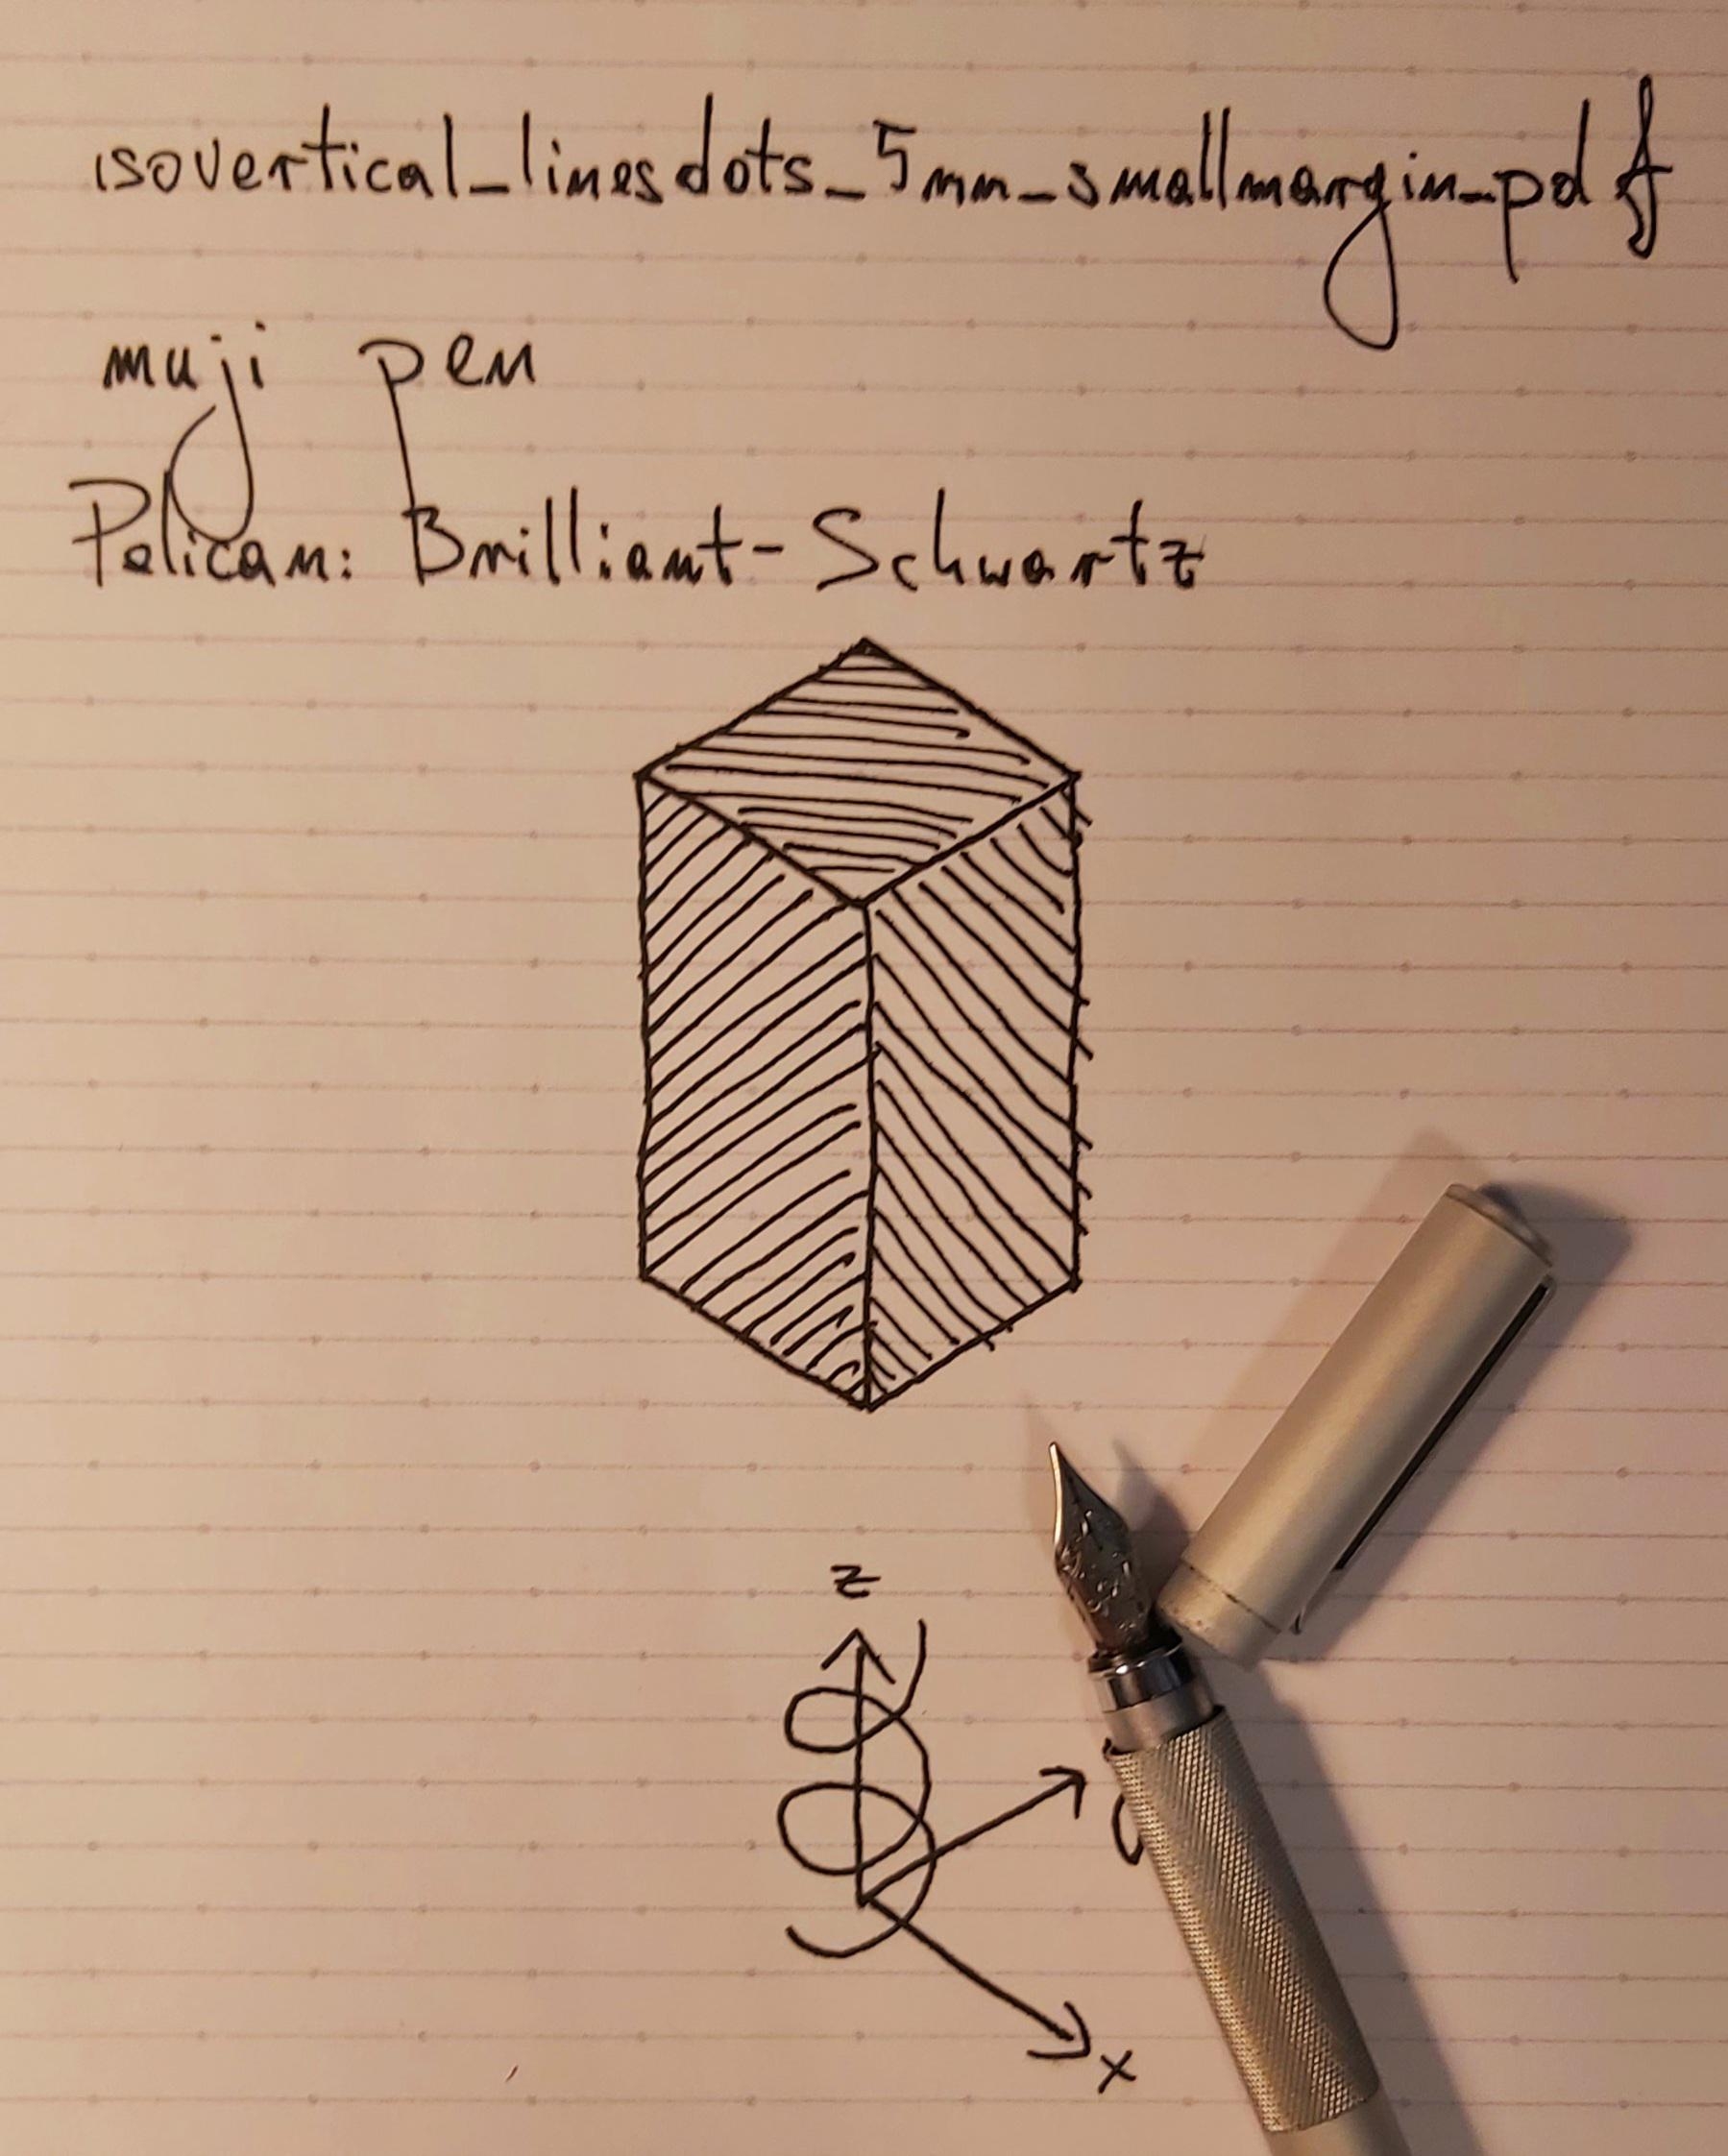 isovertical_linesdots_5mm_smallmargin_pdf
muji pen
Pelican: Brilliant-Schwartz
z
x